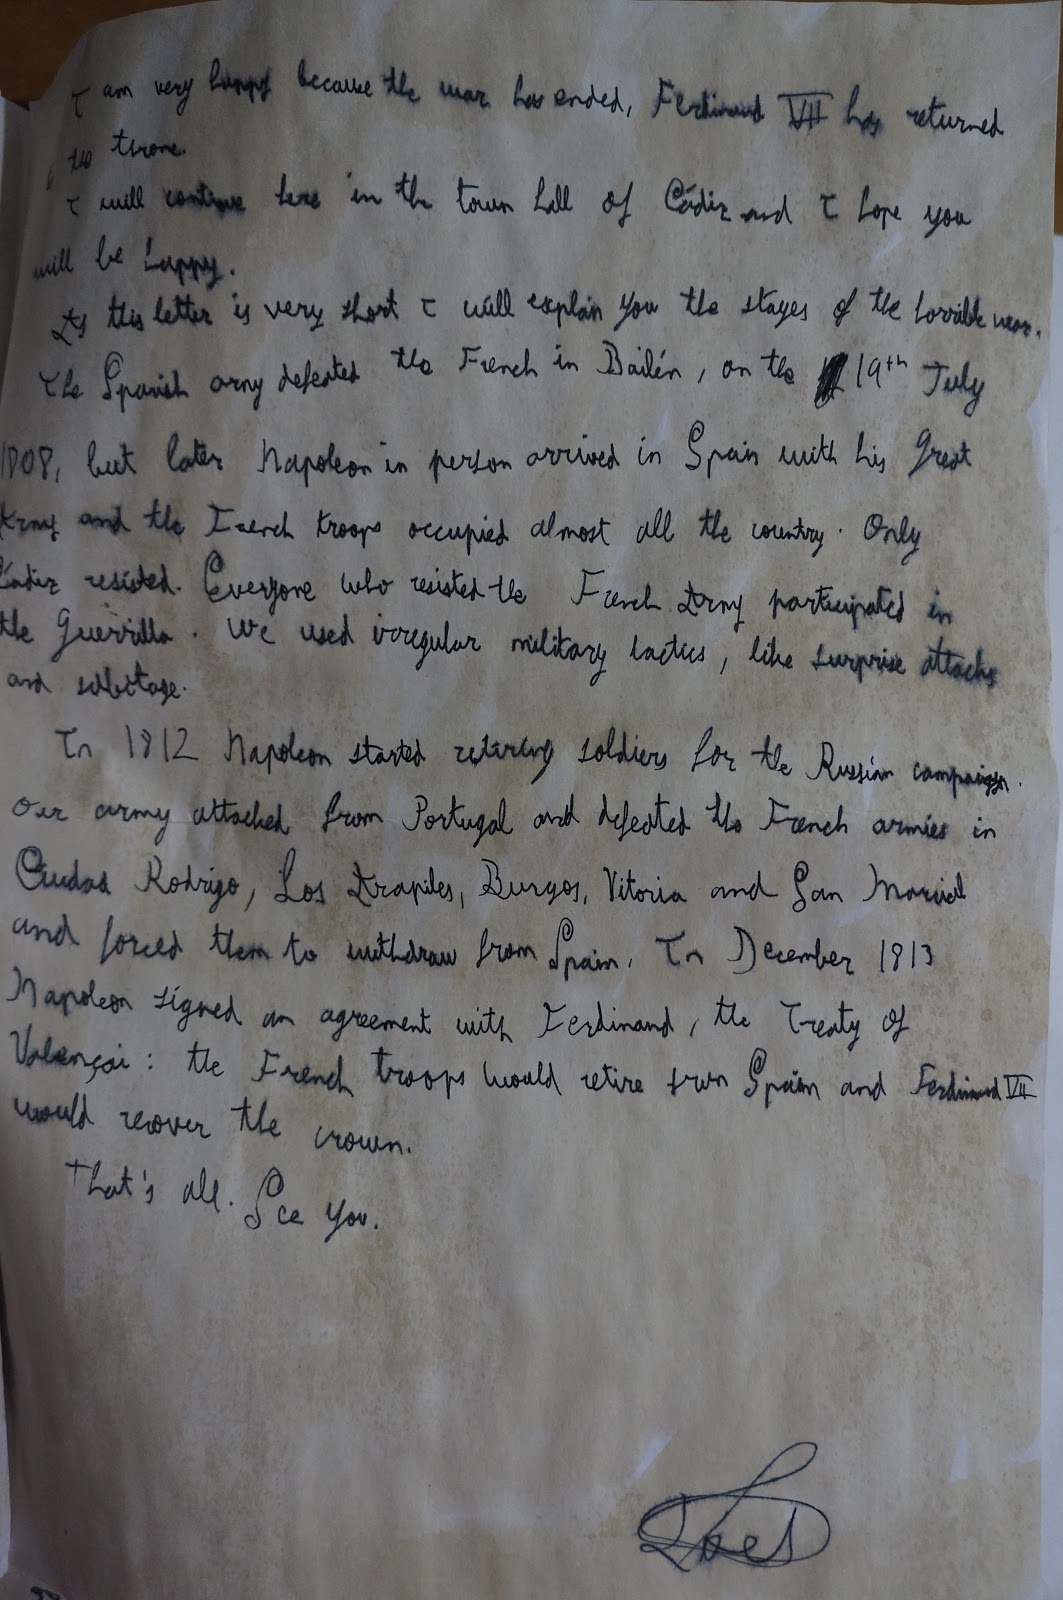 I am very happy because the war has ended, Ferdinand VII has returned
to the throne.
I will continue here in the town hall of Cádiz and I hope you
will be happy.
As this letter is very short I will explain you the stages of the horrible war.
The Spanish army defeated the French in Bailén, on the 19th July
1808, but later Napoleon in person arrived in Spain with his Great
Army and the French troops occupied almost all the country. Only
Cádiz resisted. Everyone who resisted the French Army participated in
the Guerrilla. We used irregular military tactics, like surprise attacks
and sabotage.
In 1812 Napoleon started retiring soldiers for the Russian campaign.
Our army attacked from Portugal and defeated the French armies in
Ciudad Rodrigo, Los Arapiles, Burgos, Vitoria and San Marcial
and forced them to withdraw from Spain. In December 1813
Napoleon signed an agreement with Ferdinand, the Treaty of
Valençai: the French troops would retire from Spain and Ferdinand VII
would recover the crown.
That's all. See you.